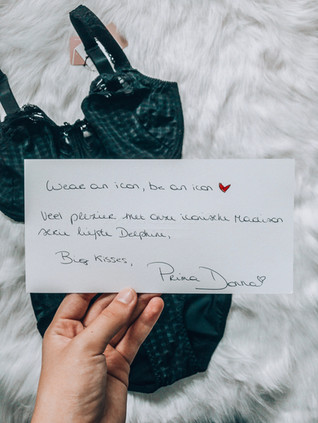 Wear an icon, be an icon ❤
Veel plezier met onze iconische Madison
liefste Delphine,
Big Kisses,
Prima Donna